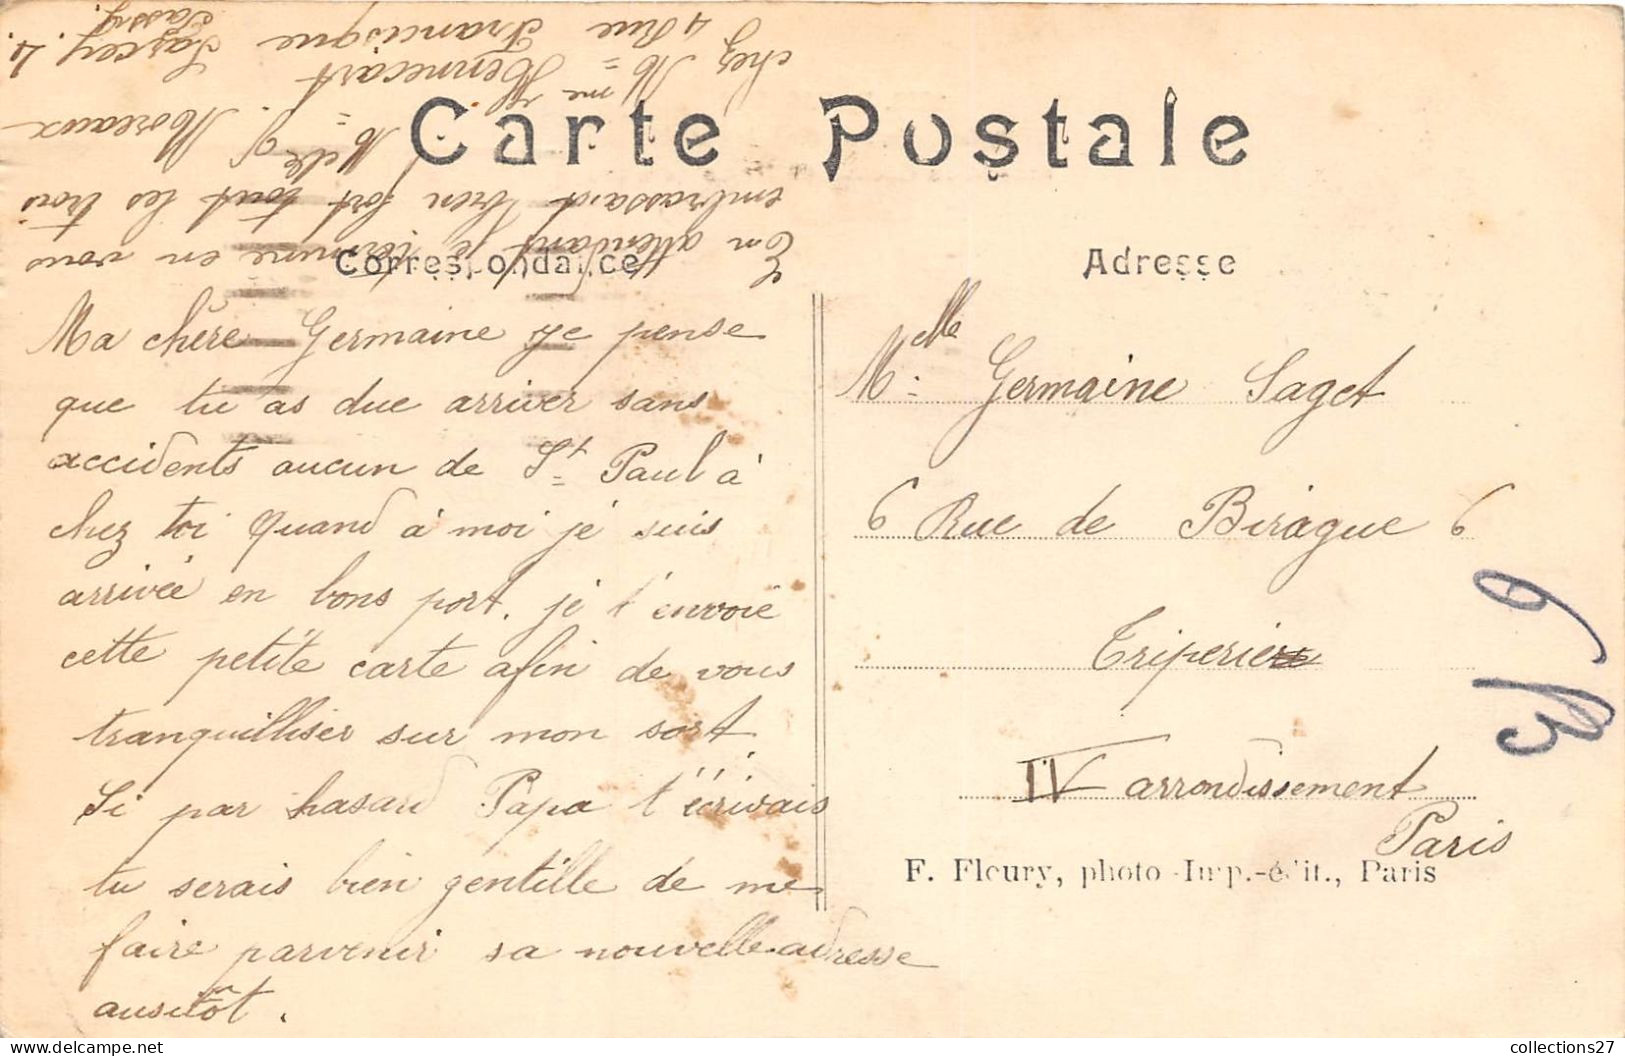 Carte Postale
Correspondance
Ma chère Germaine je pense
que tu as due arriver sans
accidents aucun de St Paul à
chez toi quand à moi je suis
arrivée en bons port. je t'envoie
cette petite carte afin de vous
tranquilliser sur mon sort.
Si par hasard Papa t'écrivais
tu serais bien gentille de me
faire parvenir sa nouvelle adresse
ausitôt.
En attendant je termine en vous
embrassant bien fort tout les trois
Melle G. Moreaux
chez Mme Hennecart
4 Rue Francisque Sarcey. 4.
Passy.
Adresse
Melle Germaine Saget
6 Rue de Birague 6
Triperie
IV arrondissement
Paris
F. Fleury, photo-Imp.-édit., Paris
collections27